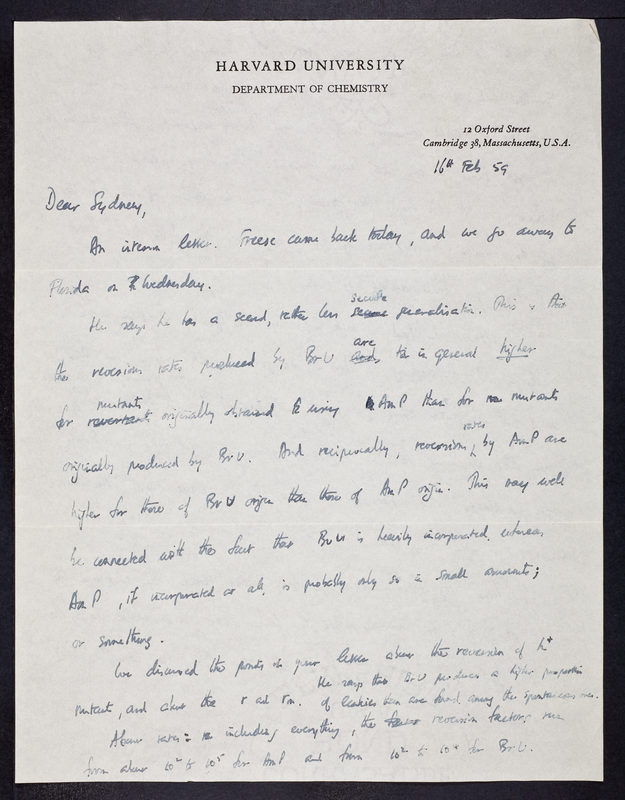 HARVARD UNIVERSITY
DEPARTMENT OF CHEMISTRY
12 Oxford Street
Cambridge 38, Massachusetts, U.S.A.
16th Feb 59
Dear Sydney,
An interim letter. Freese came back today, and we go away to
Florida on Wednesday.
He says he has a second, rather less secure generalisation. This is that
the reversion rates produced by BrU are in general higher
for mutants originally obtained using AmP than for mutants
originally produced by BrU. And reciprocally, reversion rates by AmP are
higher for those of BrU origin than those of AmP origin. This may well
be connected with the fact that BrU is heavily incorporated, whereas
AmP, if incorporated at all, is probably only so in small amounts;
or something.
We discussed the points in your letter about the reversion of h+
mutant, and about the r and rm. He says that BrU produces a higher proportion
of leakies than are found among the spontaneous ones.
About rates: including everything, the reversion factors run
from about 10² to 10⁵ for AmP and from 10² to 10⁴ for BrU.